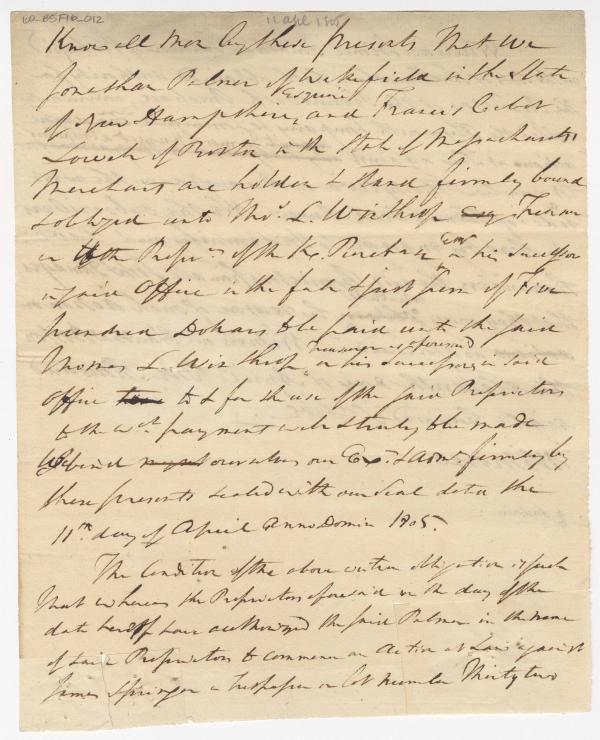 KP_B5F16_012
11 apl 1805
Know all Men by these presents that we
Jonathan Palmer of Wakefield in the State
of New Hampshire, Esquire and Francis Cabot
Lowell of Boston in the State of Massachusetts
Merchant are holden & stand firmly bound
& oblidged unto Thos. L. Winthrop Esq Treasurer
to the Proprs of the K. Purchase Esqr or his Successor
in said Office in the full & just sum of Five
hundred Dollars to be paid unto the said
Thomas L. Winthrop treasurer as aforesaid or his Successors in said
Office to & for the use of the said Proprietors
to the wch payment well & truly to be made
We bind myself ourselves our Exrs & Admrs firmly by
these presents sealed with our Seal dated the
11th. day of April Anno Domini 1805.
The Condition of the above written obligation is such
that whereas the Proprietors aforesaid on the day of the
date hereof have authorized the said Palmer in the name
of said Proprietors to commence an Action at Law against
James Springer a trespasser on Lot number Thirty two